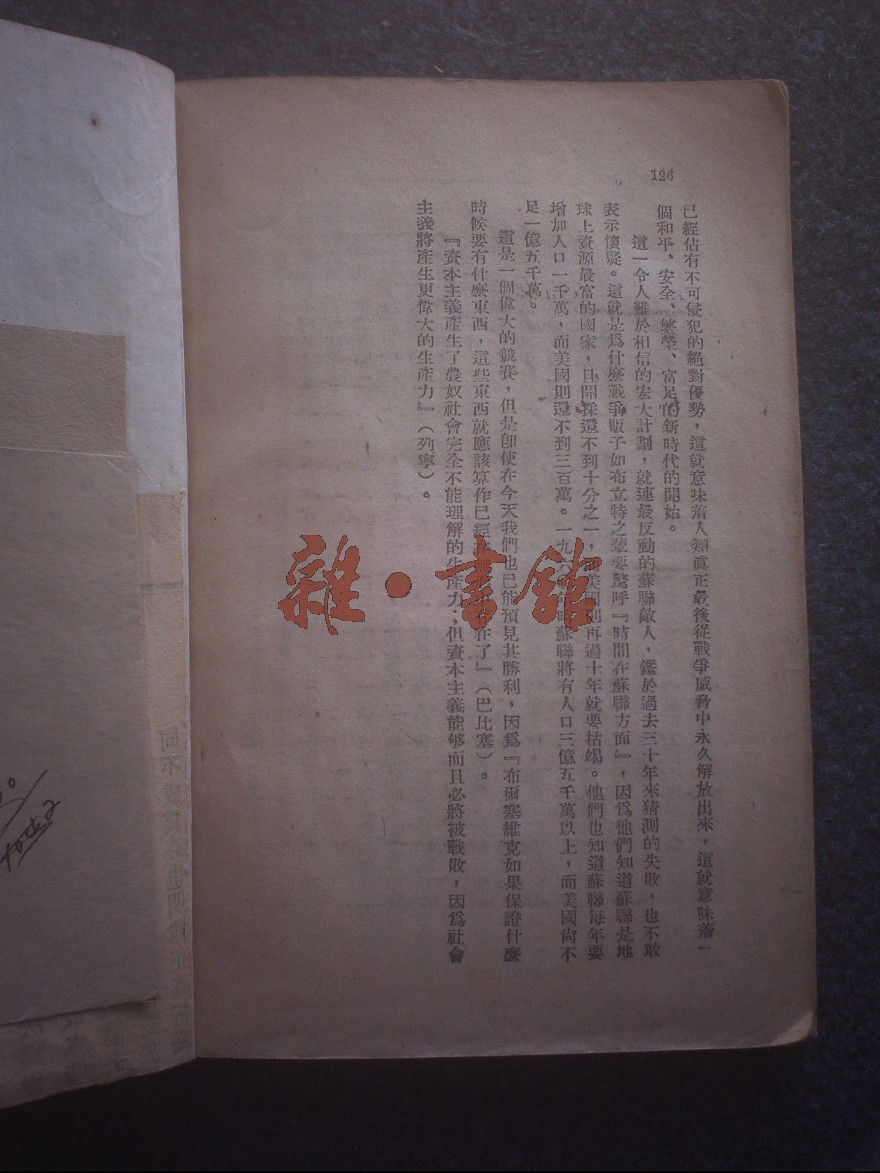 126
已經佔有不可侵犯的絕對優勢，這就意味着人類眞正最後從戰爭威脅中永久解放出來，這就意味着一
個和平、安全、繁榮、富足的新時代的開始。
這一令人難於相信的宏大計劃，就連最反動的蘇聯敵人，鑑於過去三十年來猜測的失敗，也不敢
表示懷疑。這就是爲什麼戰爭販子如布立特之輩要驚呼『時間在蘇聯方面』，因爲他們知道蘇聯是地
球上資源最富的國家，且開採還不到十分之一，而美國則再過十年就要枯竭。他們也知道蘇聯每年要
增加人口一千萬，而美國則還不到三百萬。一九六 年時蘇聯將有人口三億五千萬以上，而美國尙不
足一億五千萬。
這是一個偉大的競賽，但是卽使在今天我們也已能預見其勝利，因爲『布爾塞維克如果保證什麼
時候要有什麼東西，這些東西就應該算作已經 在了』（巴比塞）。
『資本主義產生了農奴社會完全不能理解的生產力；但資本主義能够而且必將被戰敗，因爲社會
主義將產生更偉大的生產力』（列寧）。
雜·書館